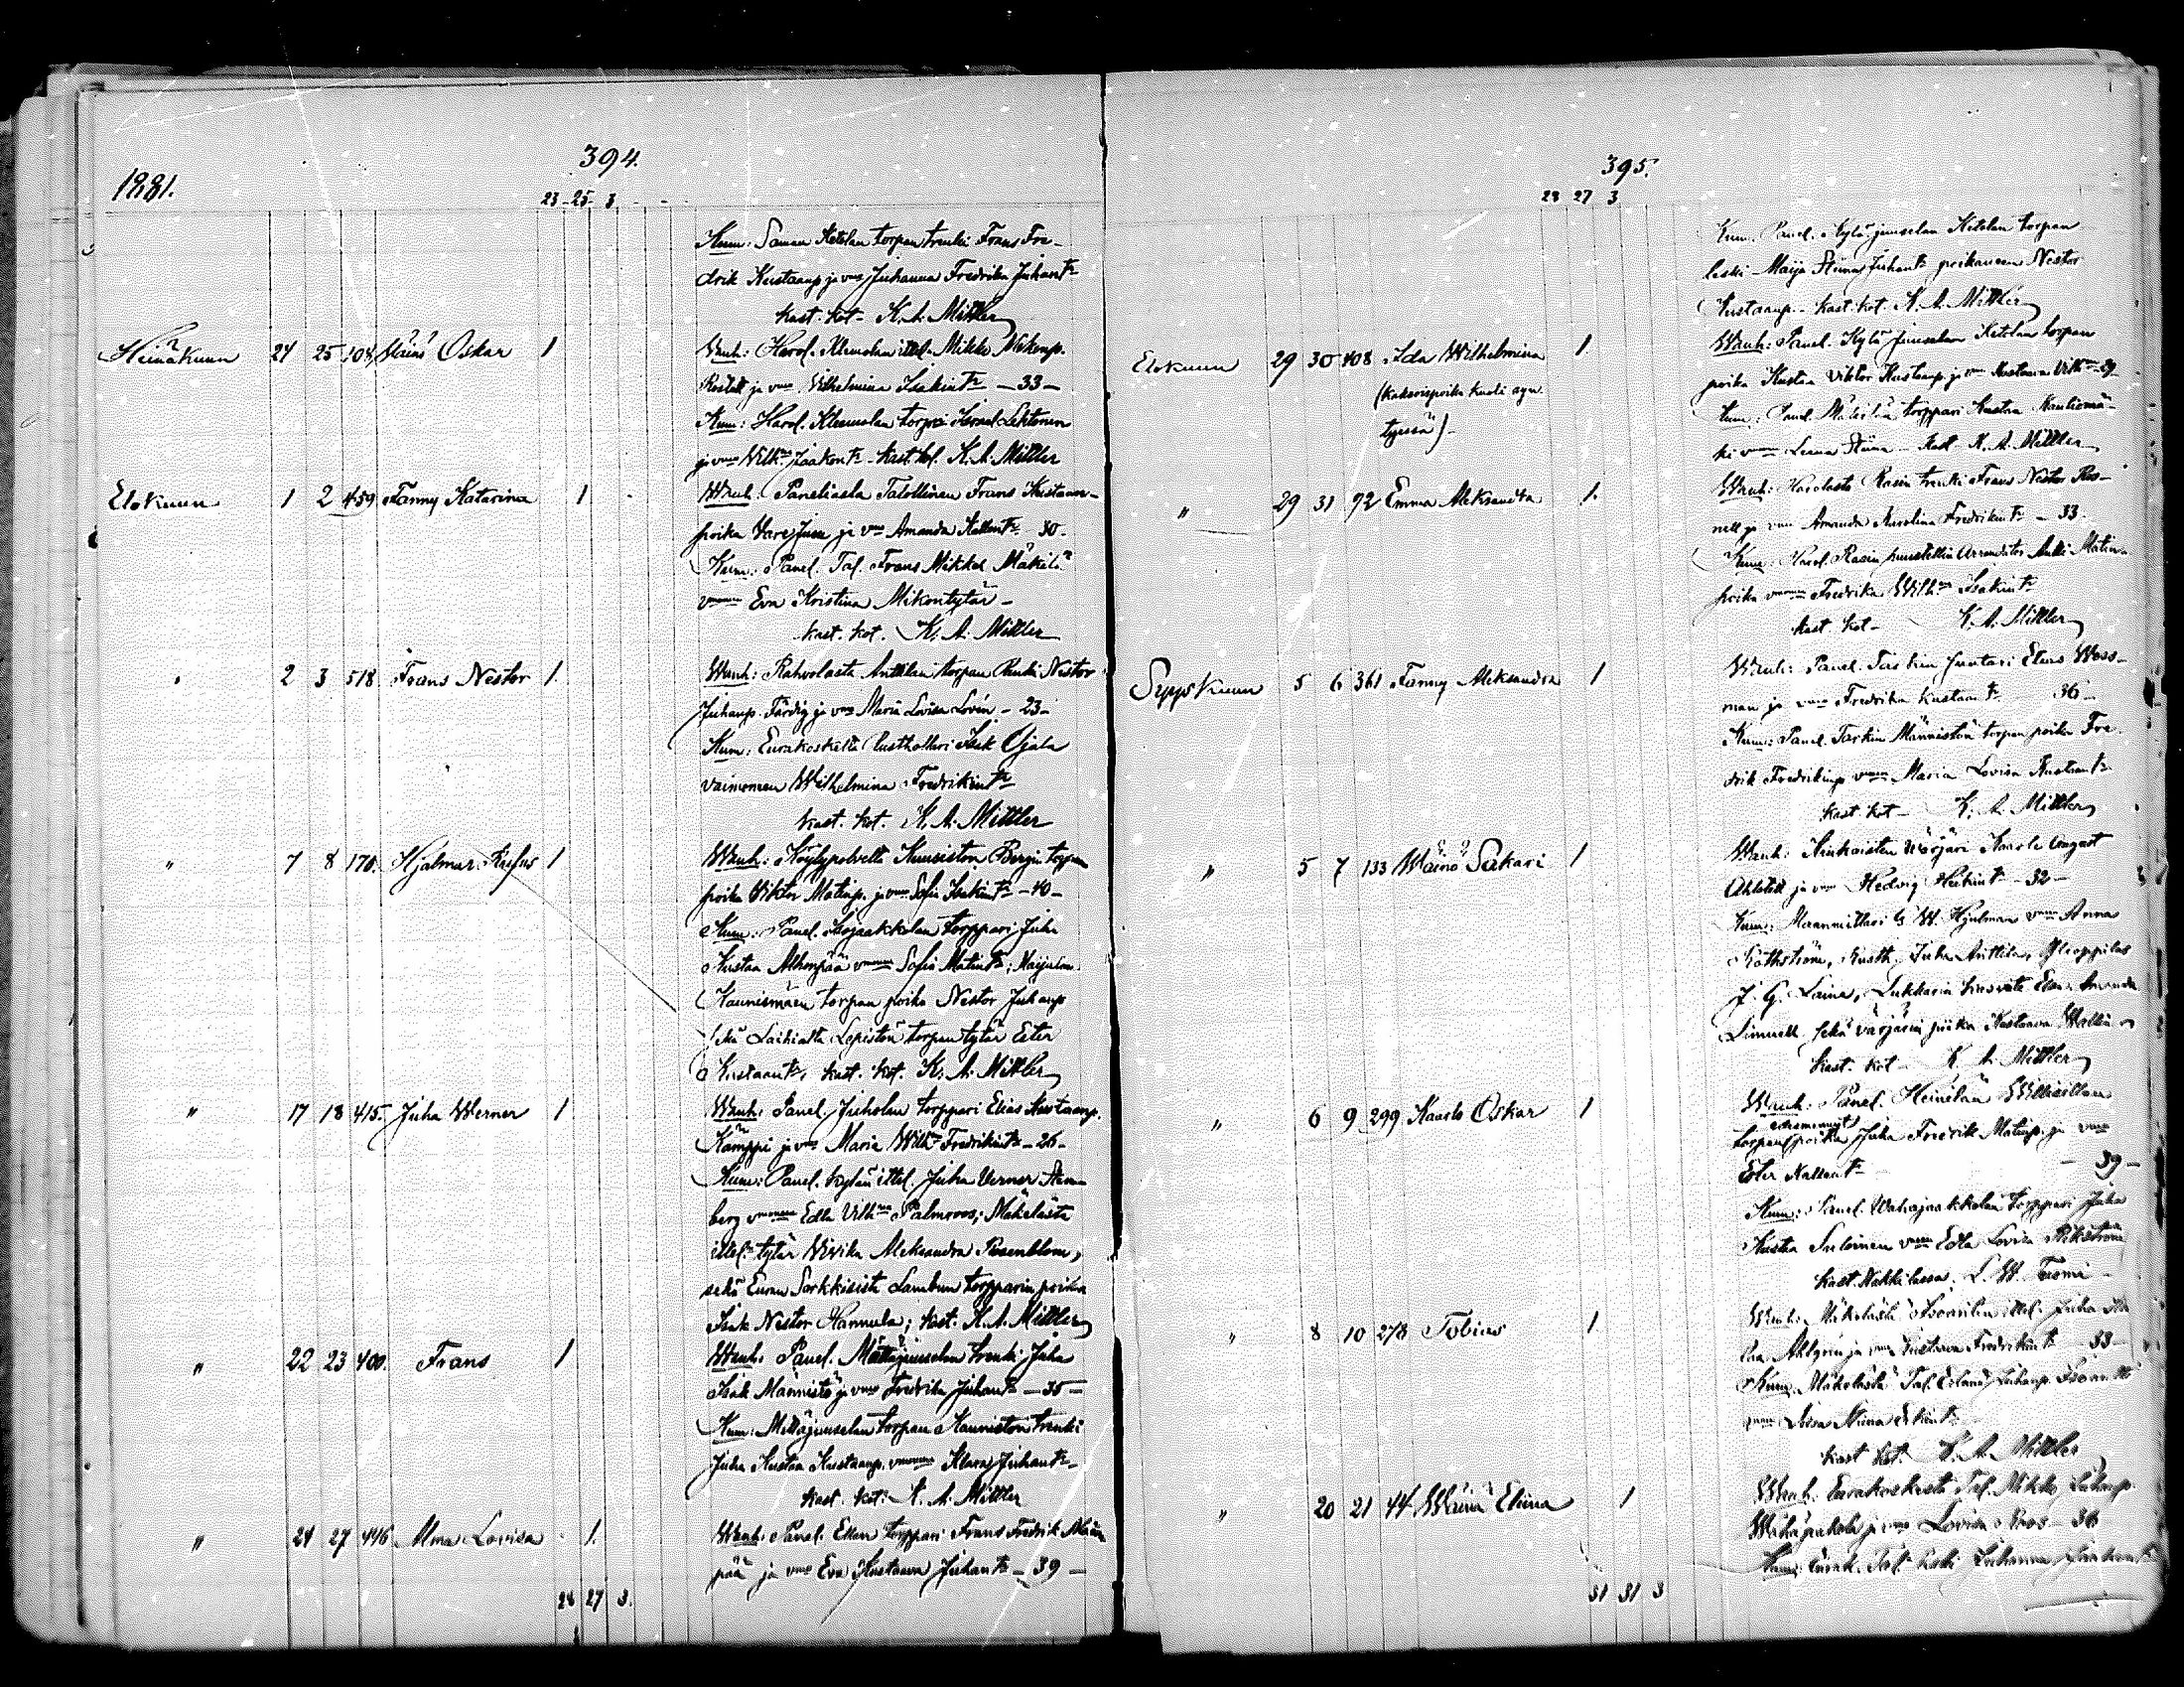 394.
1881.
23 25 3
Kum: Saman Ketolan torpan trenki Frans Fre-
drik Kustaanp. ja vmo Juhanna Fredrika Juhantr
Kast. kot. K. A. Mittler
Heinäkuun 24 25 104 Väinö Oskar 1 Wanh: Harol. Klemolan ittel. Mikko Mikonp.
ja vmo Vilhelmina Isakintr — 33 —
Kum: Harol. Klemolan torpri Israel Lehtonen
ja vmo Wilhna Jaakontr Kast. kot. K. A. Mittler
Elokuun 1 2 459 Fanny Katarina 1 Wanh: Paneliasta Talollinen Frans Kustaan-
poika Vare Juse ja vmo Amanda Kallentr. 30.
Kum: Panel. Tal. Frans Mikkel Mäkilä
vmonsa Eva Kristina Mikontytär —
Kast. kot. K. A. Mittler
" 2 3 518 Frans Nestor 1. Wanh: Rahvolasta Anttilan torpan Renki Nestor
Juhanp. Färdig ja vmo Maria Lovisa Lovén — 23 —
Kum: Eurakoskelta Rusthollari Isak Ojala
vaimonsa Wilhelmina Fredrikintr
Kast. kot. K. A. Mittler
" 7 8 170. Hjalmar Rufus 1 Wanh: Köylypolvelta Kuusiston Bergin torpan
poika Viktor Matinp. ja vmo Sofia Isakintr — 40 —
Kum: Panel. Isojaakkolan torppari Juha
Kustaa Alhonpää vmonsa Sofia Matintr;
Kaunismäen torpan poika Nestor Juhanp
sekä Laihialta Lepistön torpan tytär Ester
Kustaantr, Kast. kot. K. A. Mittler
" 17 18 415. Juha Werner 1 Wanh: Panel. Juholan torppari Elias Kustaanp.
Kämppi ja vmo Maria Wilhna Fredrikintr — 26 —
Kum: Panel. kylän ittel. Juha Verner Sten-
berg vmonsa Edla Vilhna Palmroos; Mäkelästä
ittel. tytär Wivika Aleksandra Rosenblom,
sekä Euran Sorkkisista Lambun torpparin poika
Isak Nestor Hannula; Kast. K. A. Mittler
" 22 23 400. Frans 1 Wanh: Panel. Mattäjuuselan trenki Juha
Isak Männistö ja vmo Fredrika Juhantr — 35 —
Kum: Mattäjuuselan torpan Kauniston trenki
Juha Kustaa Kustaanp. vmonsa Klara Juhantr —
Kast. kot. K. A. Mittler
" 24 27 446 Alma Lovisa 1. Wanh: Panel. torppari Frans Fredrik
pää ja vmo Eva Kustaava Juhantr — 39 —
28 27 3.
395.
28 27 3
Kum. Panel. Kyläjuuselan Ketolan torpan
leski Maija Stiina Juhantr poikansa Nestor
Kustaanp. Kast. kot. K. A. Mittler
Elokuun 29 30 408 Ida Wilhelmina 1. Wanh: Panel. Kylä Juuselan Ketolan torpan
(kaksoispoika kuoli syn-
tyissä)
poika Kustaa Viktor Kustaanp. ja vmo Kustaava Vilhna 29
Kum: Panel. Mäkilän torppari Kustaa
ki vmonsa Leena Stiina — Kast K. A. Mittler
" 29 31 92 Emma Aleksandra 1. Wanh: Harolasta Rasin trenki Frans Nestor Ros-
nell ja vmo Amanda Karolina Fredrikintr — 33.
Kum: Harol. Rasin puustellin Arrendator Antti Matin-
poika vmonsa Fredrika Wilhna Isakintr
Kast. kot — K. A. Mittler
Syyskuun 5 6 361 Fanny Aleksandra 1 Wanh: Panel. Tarkin Juntari Elias Wess-
man ja vmo Fredrika Kustaantr 36 —
Kum: Panel. Tarkin Männistön torpan poika Fre-
drik Fredrikinp vmonsa Maria Lovisa Kustaantr
Kast. kot — K. A. Mittler
" 5 7 133 Wäinö Sakari 1 Wanh: Kiukaisten Värjäri Kaarle August
Ahlstedt ja vmo Hedvig Heikintr — 32 —
Kum: Maanmittari G. W. Hjelman vmonsa Anna
Rusth. Juha Anttila, Ylioppilas
J. G. Laine, Lukkarin Amanda
Limnell sekä värjärin poika Kustaava Wallin
Kast. kot — K. A. Mittler
" 6 9 299 Kaarlo Oskar 1 Wanh: Panel. Heinilän
torpan poika Juha Fredrik Matinp. ja vmo
Ester Kallentr — 39 —
Kum: Panel. Wähäjaakkolan torppari Juha
Kustaa Suloinen vmonsa Edla Lovisa
Kast. Nakkilassa. L. W. Tuomi —
" 8 10 278 Tobias 1 Wanh: Mäkelästä ittel. Juha
Ahlgrén ja vmo Kustaava Fredrikintr — 33 —
Kum. Mäkelästä Tal. Juhanp.
vmonsa Stiina
Kast kot. K. A. Mittler
" 20 21 44 Wäinä Eliina 1 Wanh: Eurakoskesta Tal. Mikko Juhanp.
ja vmo Lovisa Roos — 36
Kum: Eurak. Tal. leski Juhanna
31 31 3